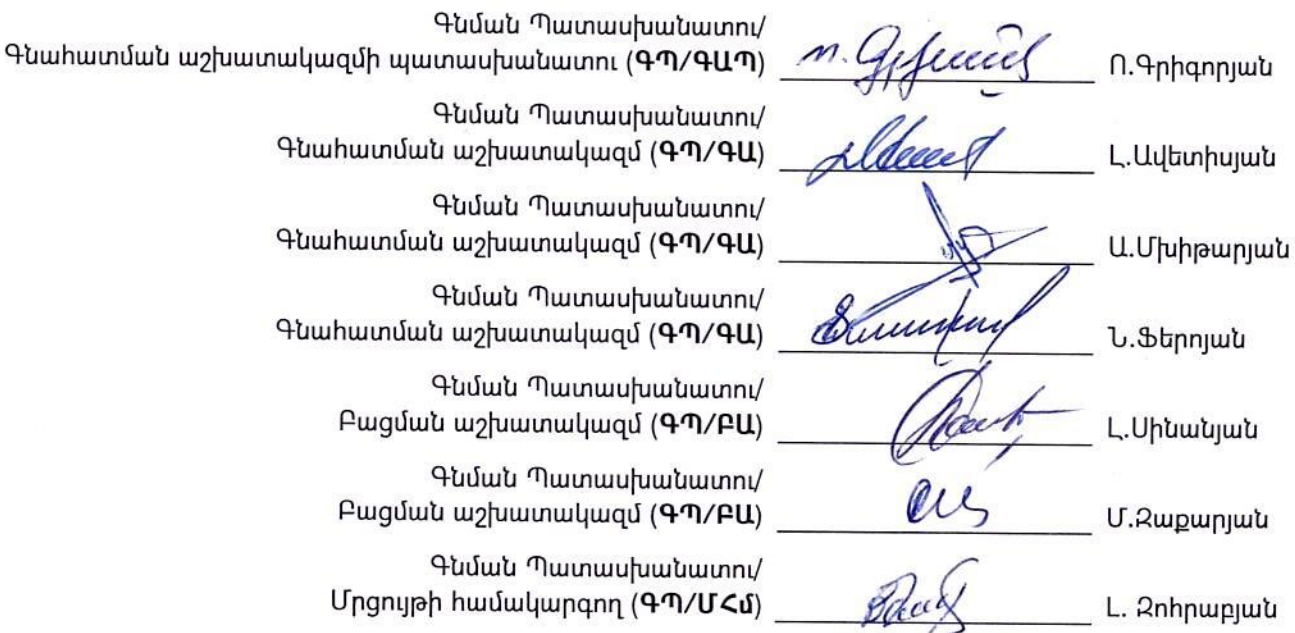 Գնման Պատասխանատու/
Գնահատման աշխատակազմի պատասխանատու (ԳՊ/ԳԱՊ) Ո.Գրիգորյան
Գնման Պատասխանատու/
Գնահատման աշխատակազմ (ԳՊ/ԳԱ) Լ.Ավետիսյան
Գնման Պատասխանատու/
Գնահատման աշխատակազմ (ԳՊ/ԳԱ) Ա.Մխիթարյան
Գնման Պատասխանատու/
Գնահատման աշխատակազմ (ԳՊ/ԳԱ) Ն.Ֆերոյան
Գնման Պատասխանատու/
Բացման աշխատակազմ (ԳՊ/ԲԱ) Լ.Սինանյան
Գնման Պատասխանատու/
Բացման աշխատակազմ (ԳՊ/ԲԱ) Մ.Զաքարյան
Գնման Պատասխանատու/
Մրցույթի համակարգող (ԳՊ/ՄՀմ) Լ. Զոհրաբյան